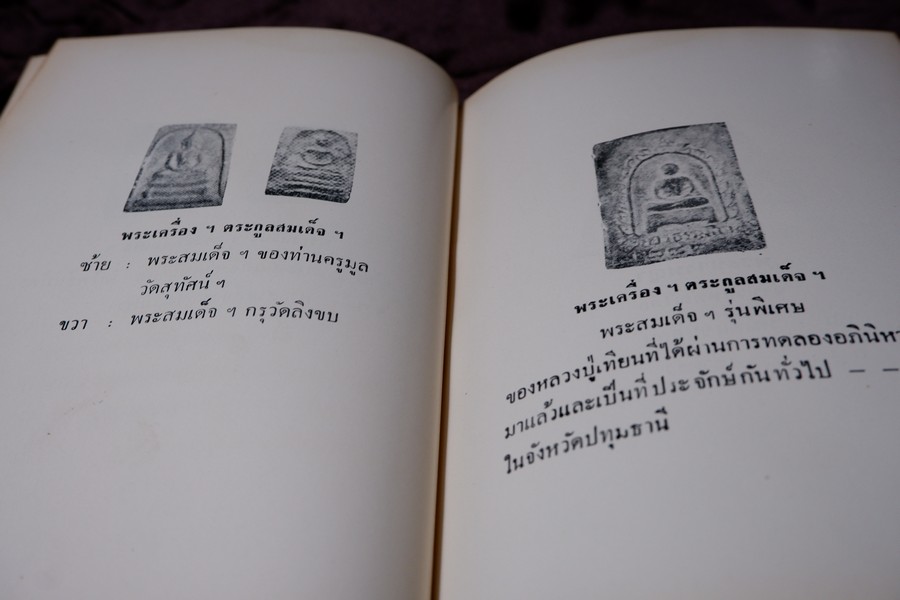 พระเครื่อง ฯ ตระกูลสมเด็จ ฯ
ซ้าย : พระสมเด็จ ฯ ของท่านครูมูล
วัดสุทัศน์ ฯ
ขวา : พระสมเด็จ ฯ กรุวัดลิงขบ
พระเครื่อง ฯ ตระกูลสมเด็จ ฯ
พระสมเด็จ ฯ รุ่นพิเศษ
ของหลวงปู่เทียนที่ได้ผ่านการทดลองอภินิหา
มาแล้วและเป็นที่ประจักษ์กันทั่วไป — —
ในจังหวัดปทุมธานี